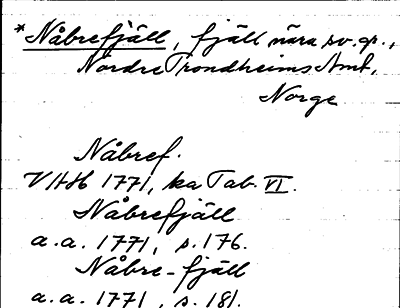 *Nåbrefjäll, fjäll nära sv. gr.,
Nordre Trondheims Amt,
Norge
Nåbref.
VAH 1771, ka Tab. VI.
Nåbrefjäll
a.a. 1771, s. 176.
Nåbre-fjäll
a.a. 1771, s. 181.